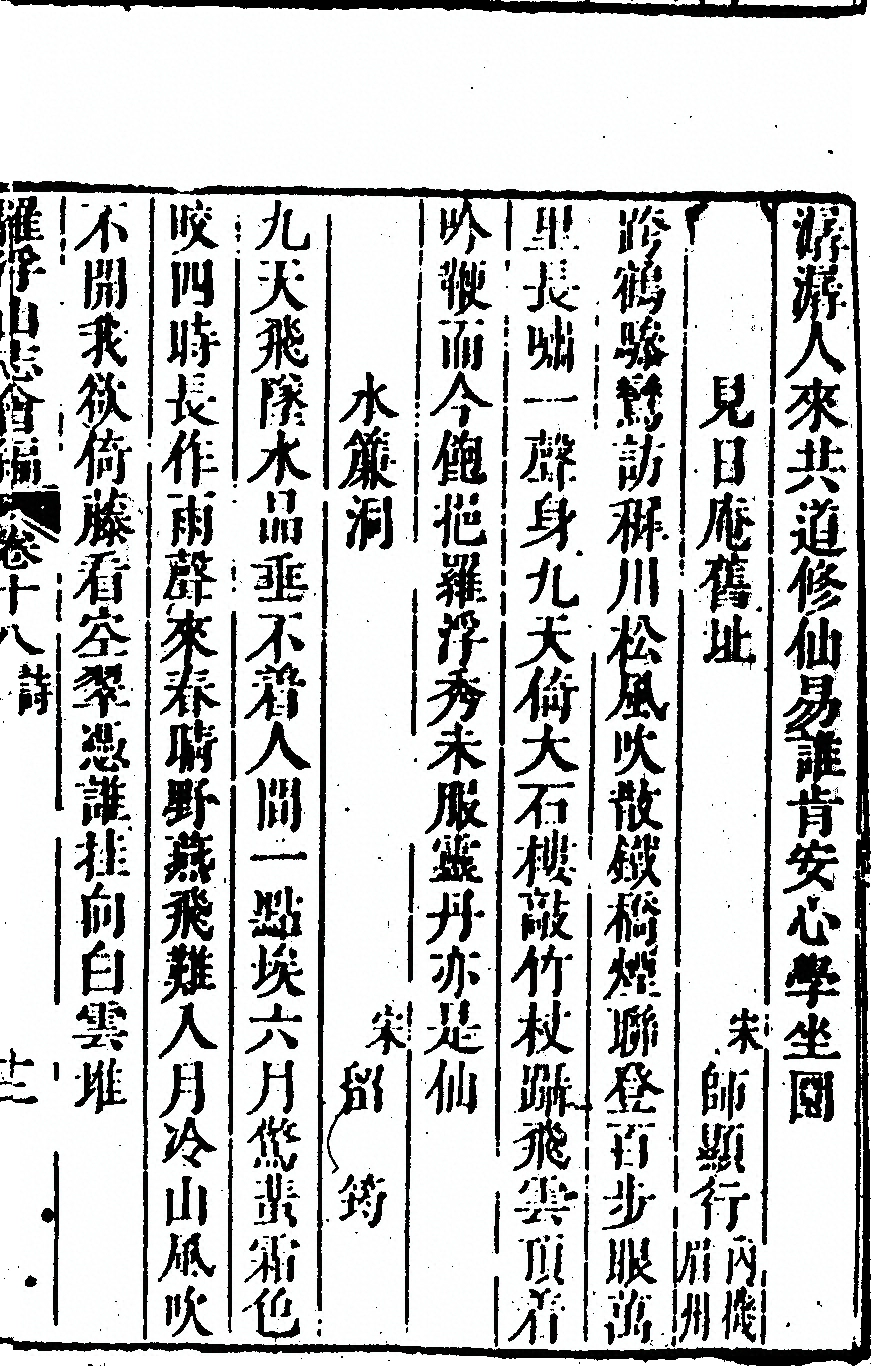 潺潺人來共道修仙易誰肯安心學坐圜
見日庵舊址
宋師顯行丙機眉州
跨鶴驂鸞訪稚川松風吹散鐵橋煙聯登百步眼萬
里長嘯一聲身九天倚大石樓敲竹杖躡飛雲頂着
吟鞭而今飽挹羅浮秀未服靈丹亦是仙
水簾洞
宋留筠
九天飛墜水晶垂不着人間一點埃六月驚蜚霜色
咬四時長作雨聲來春晴野燕飛難入月冷山風吹
不開我欲倚藤看空翠憑誰挂向白雲堆
羅浮山志會編卷十八詩